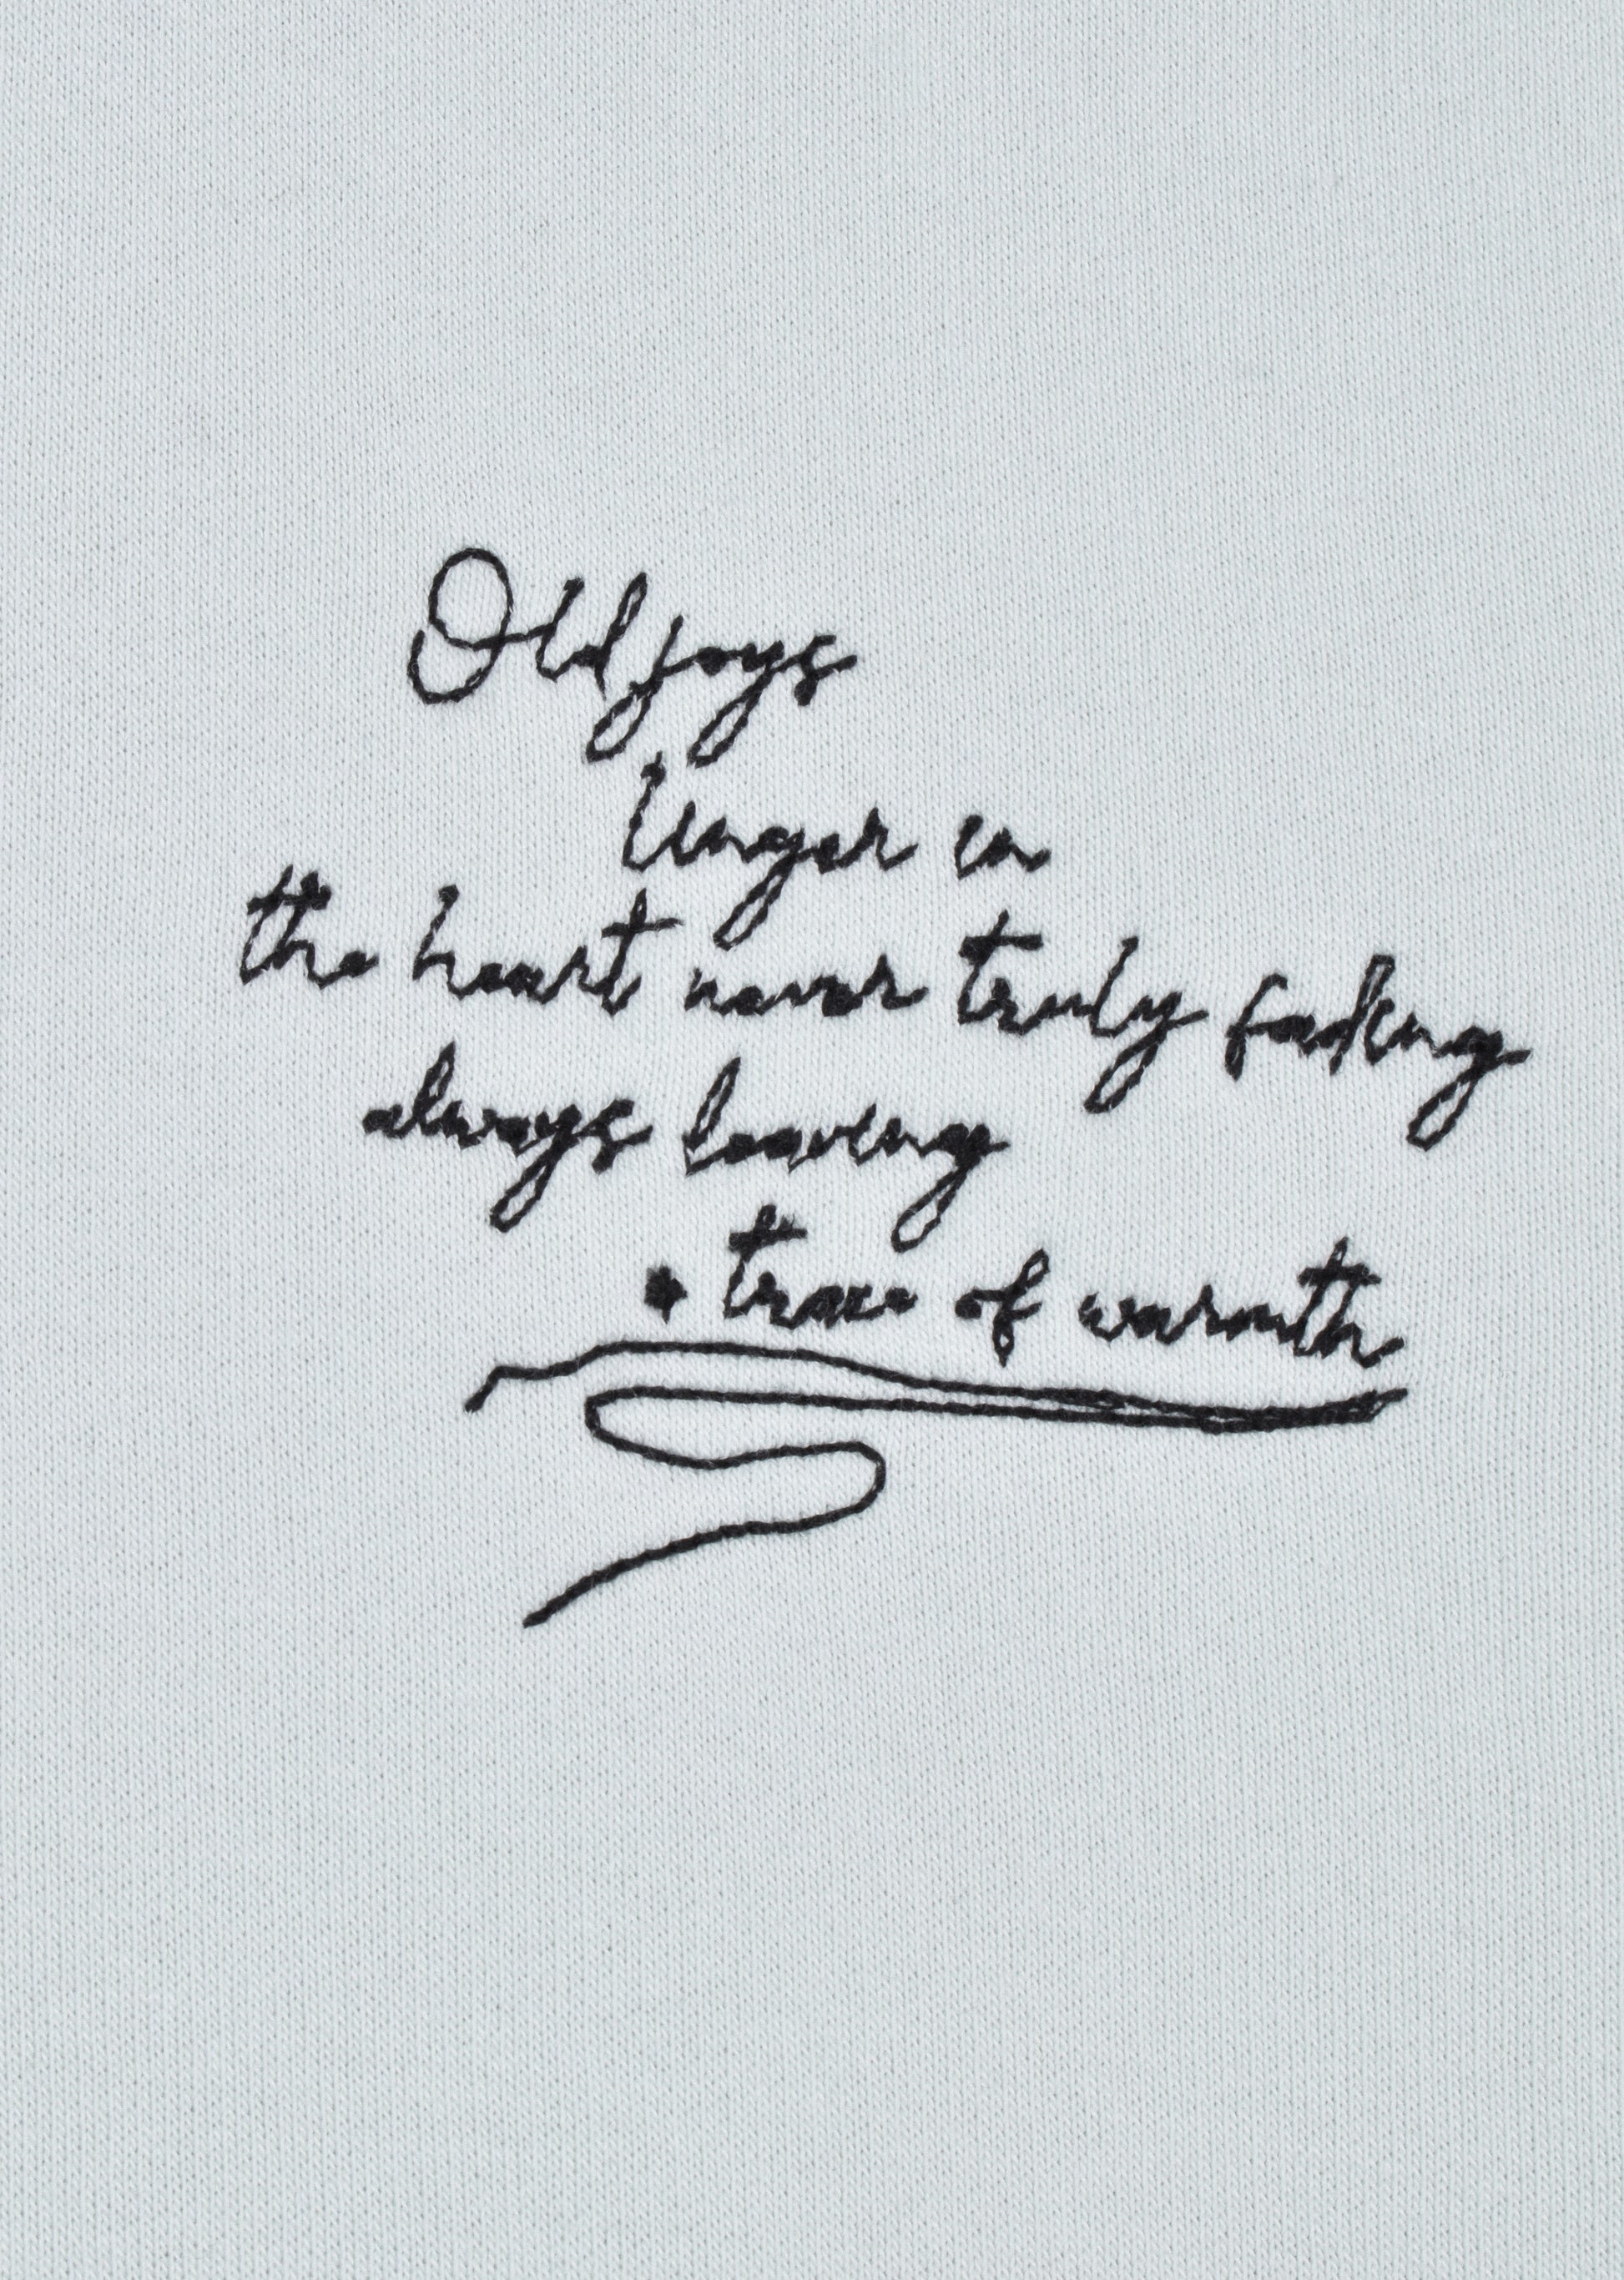 Old joys
linger in
the heart never truly fading
always leaving
a trace of warmth